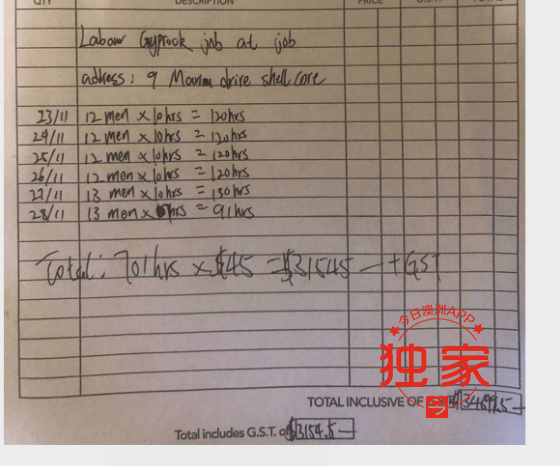 QTY DESCRIPTION PRICE G.S.T.
Labour Gyprock job at job
address: 9 drive shell cove
23/11 12 men x 10hrs = 120hrs
24/11 12 men x 10hrs = 120hrs
25/11 12 men x 10hrs = 120hrs
26/11 12 men x 10hrs = 120hrs
27/11 13 men x 10hrs = 130hrs
28/11 13 men x hrs = 91hrs
Total: 701hrs x $45 = $31545 — + GST
今日澳洲APP
独家
TOTAL INCLUSIVE OF
Total includes G.S.T. of $3154.5